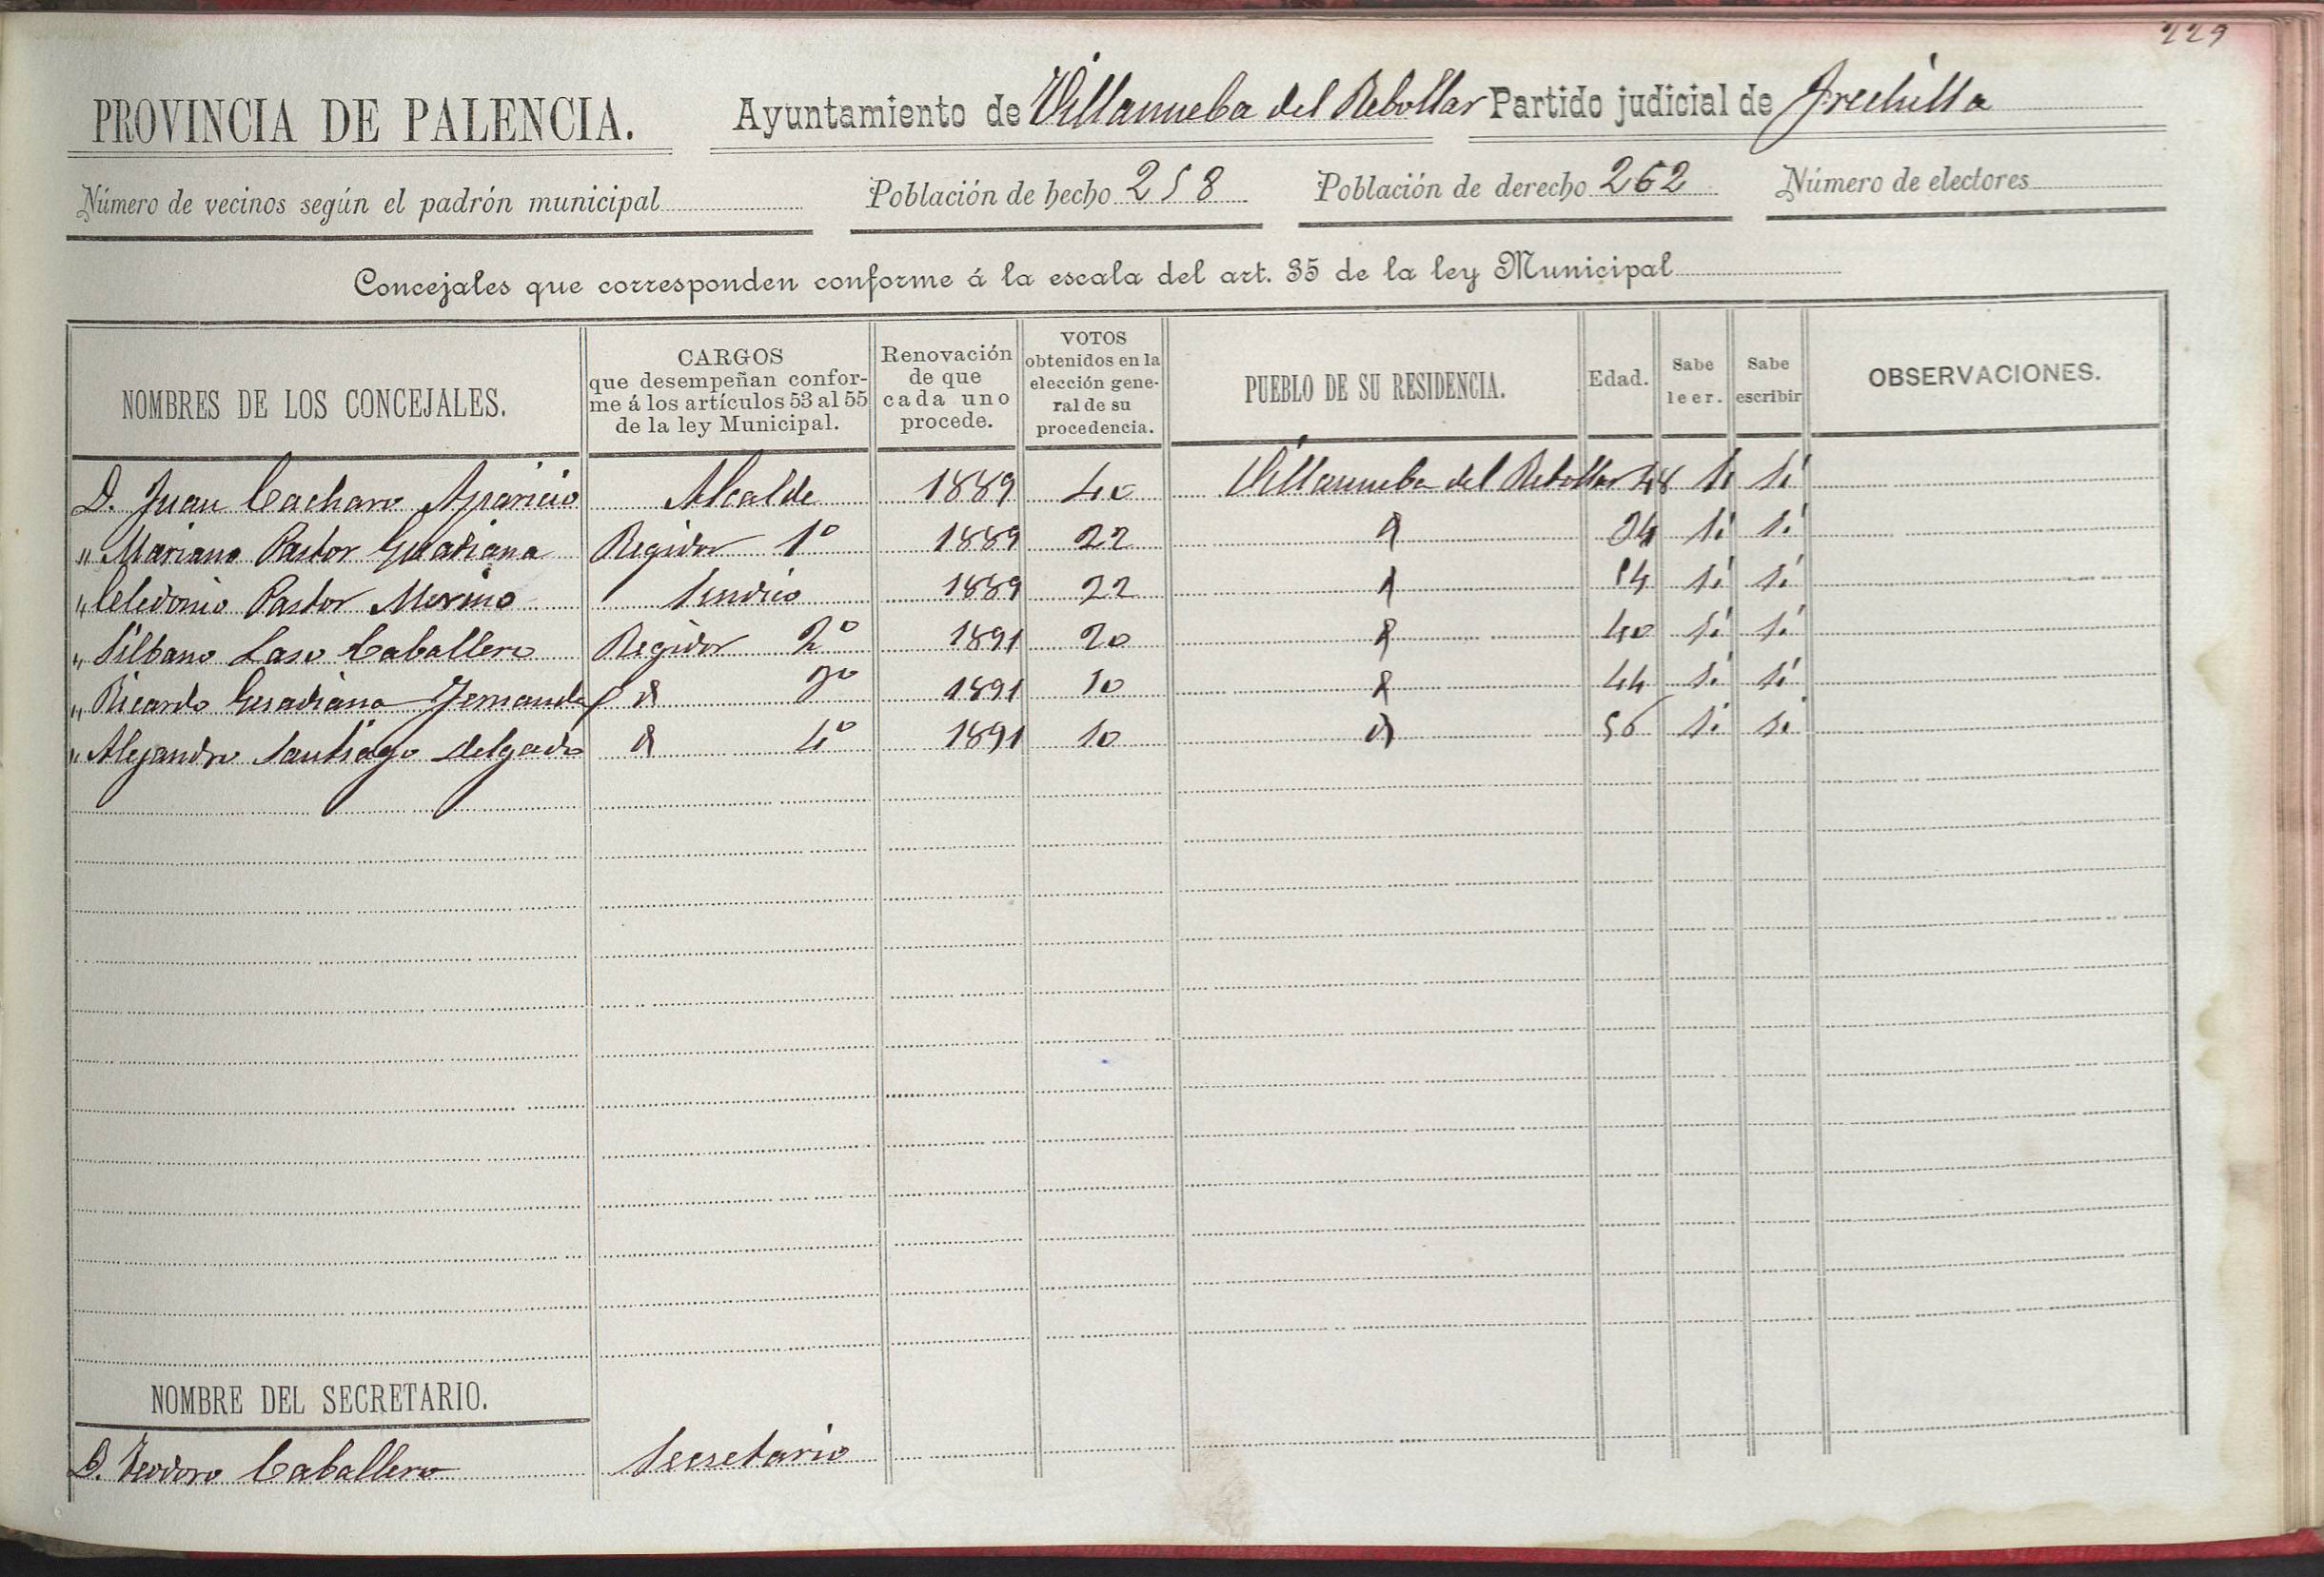 229
PROVINCIA DE PALENCIA. Ayuntamiento de Villanueba del Rebollar Partido judicial de Frechilla
Número de vecinos según el padrón municipal Población de hecho 258 Población de derecho 262 Número de electores
Concejales que corresponden conforme á la escala del art. 35 de la ley Municipal
NOMBRES DE LOS CONCEJALES. CARGOS que desempeñan confor-me á los artículos 53 al 55 de la ley Municipal. Renovación de que cada uno procede. VOTOS obtenidos en la elección gene-ral de su procedencia. PUEBLO DE SU RESIDENCIA. Edad. Sabe leer. Sabe escribir OBSERVACIONES.
D. Juan Cacharo Aparicio Alcalde 1889 40 Villanueba del Rebollar 48 Si Si
" Mariano Pastor Guadiana Regidor 1º 1889 22 Si Si
" Celedonio Pastor Merino Sindico 1889 22 Si Si
" Silbano Laso Caballero Regidor 2º 1891 20 40 Si Si
" Ricardo Guadiana Fernandez 3º 1891 10 44 Si Si
" Alejandro Santiago delgado 4º 1891 10 56 Si Si
NOMBRE DEL SECRETARIO.
D. Teodoro Caballero Secretario